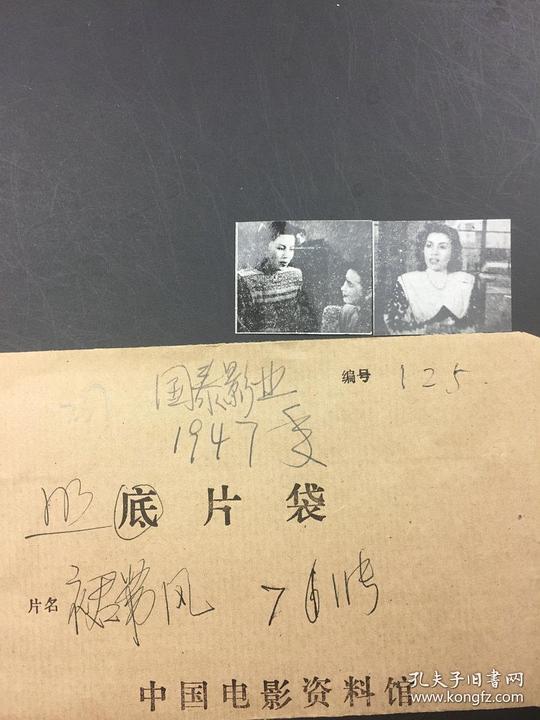 国泰影业
编号 125.
1947
底片袋
片名 裙带风
中国电影资料馆
孔夫子旧书网
www.kongfz.com